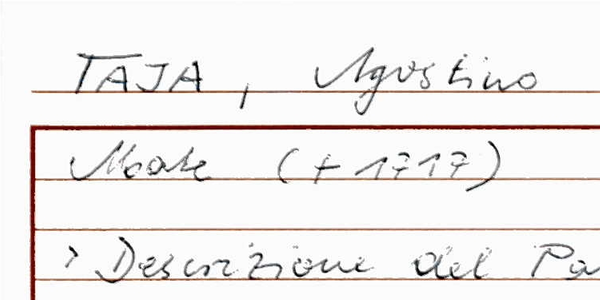 TAJA, Agostino
Abate (+ 1717)
> Descrizione del Pa